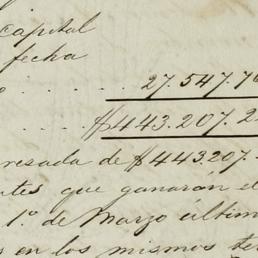 Capital
fecha
. . . . 27.547.7
. . . $443.207.2
resada de $443.207.
que ganarán e
1º de Marzo últim
en los mismos te